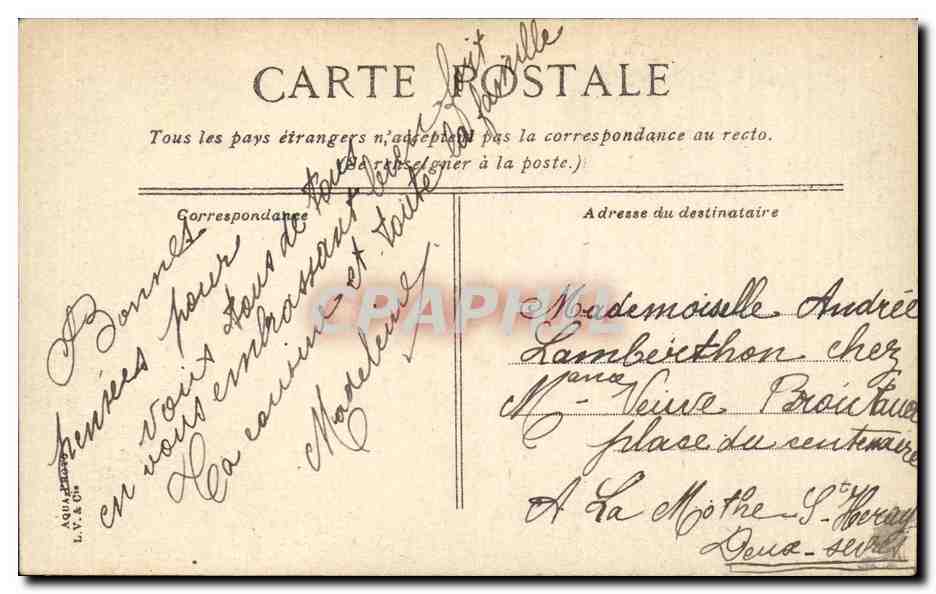 CARTE POSTALE
Tous les pays étrangers n'acceptent pas la correspondance au recto.
(Se renseigner à la poste.)
Correspondance
Adresse du destinataire
Bonnes
pensées pour
vous tous de tous
en vous embrassant bien fort
Ta cousine et toute la famille
Madeleine
Mademoiselle Andrée
Lamberthon chez
Veuve
place du centenaire
A La Mothe St-Heray
Deux-sevres
AQUA-PHOTO
L.V. & Cie
CPAPHIL